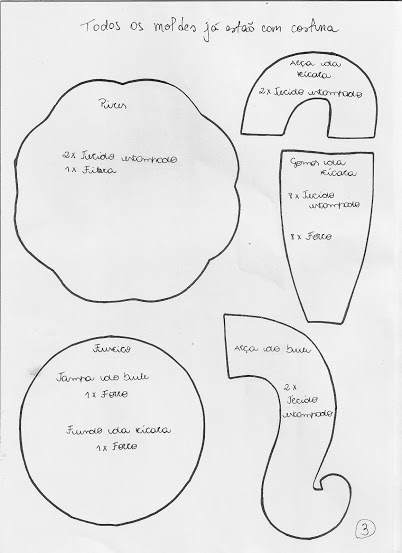 Todos os moldes já estão com costura
Pires
2x Tecido estampado
1x Fibra
Alça da
xícara
2x Tecido estampado
Gomos da
xícara
8x Tecido
estampado
8x Forro
Fuxico
Tampa do bule
1x Forro
Fundo da xícara
1x Forro
Alça do bule
2x
Tecido
estampado
3